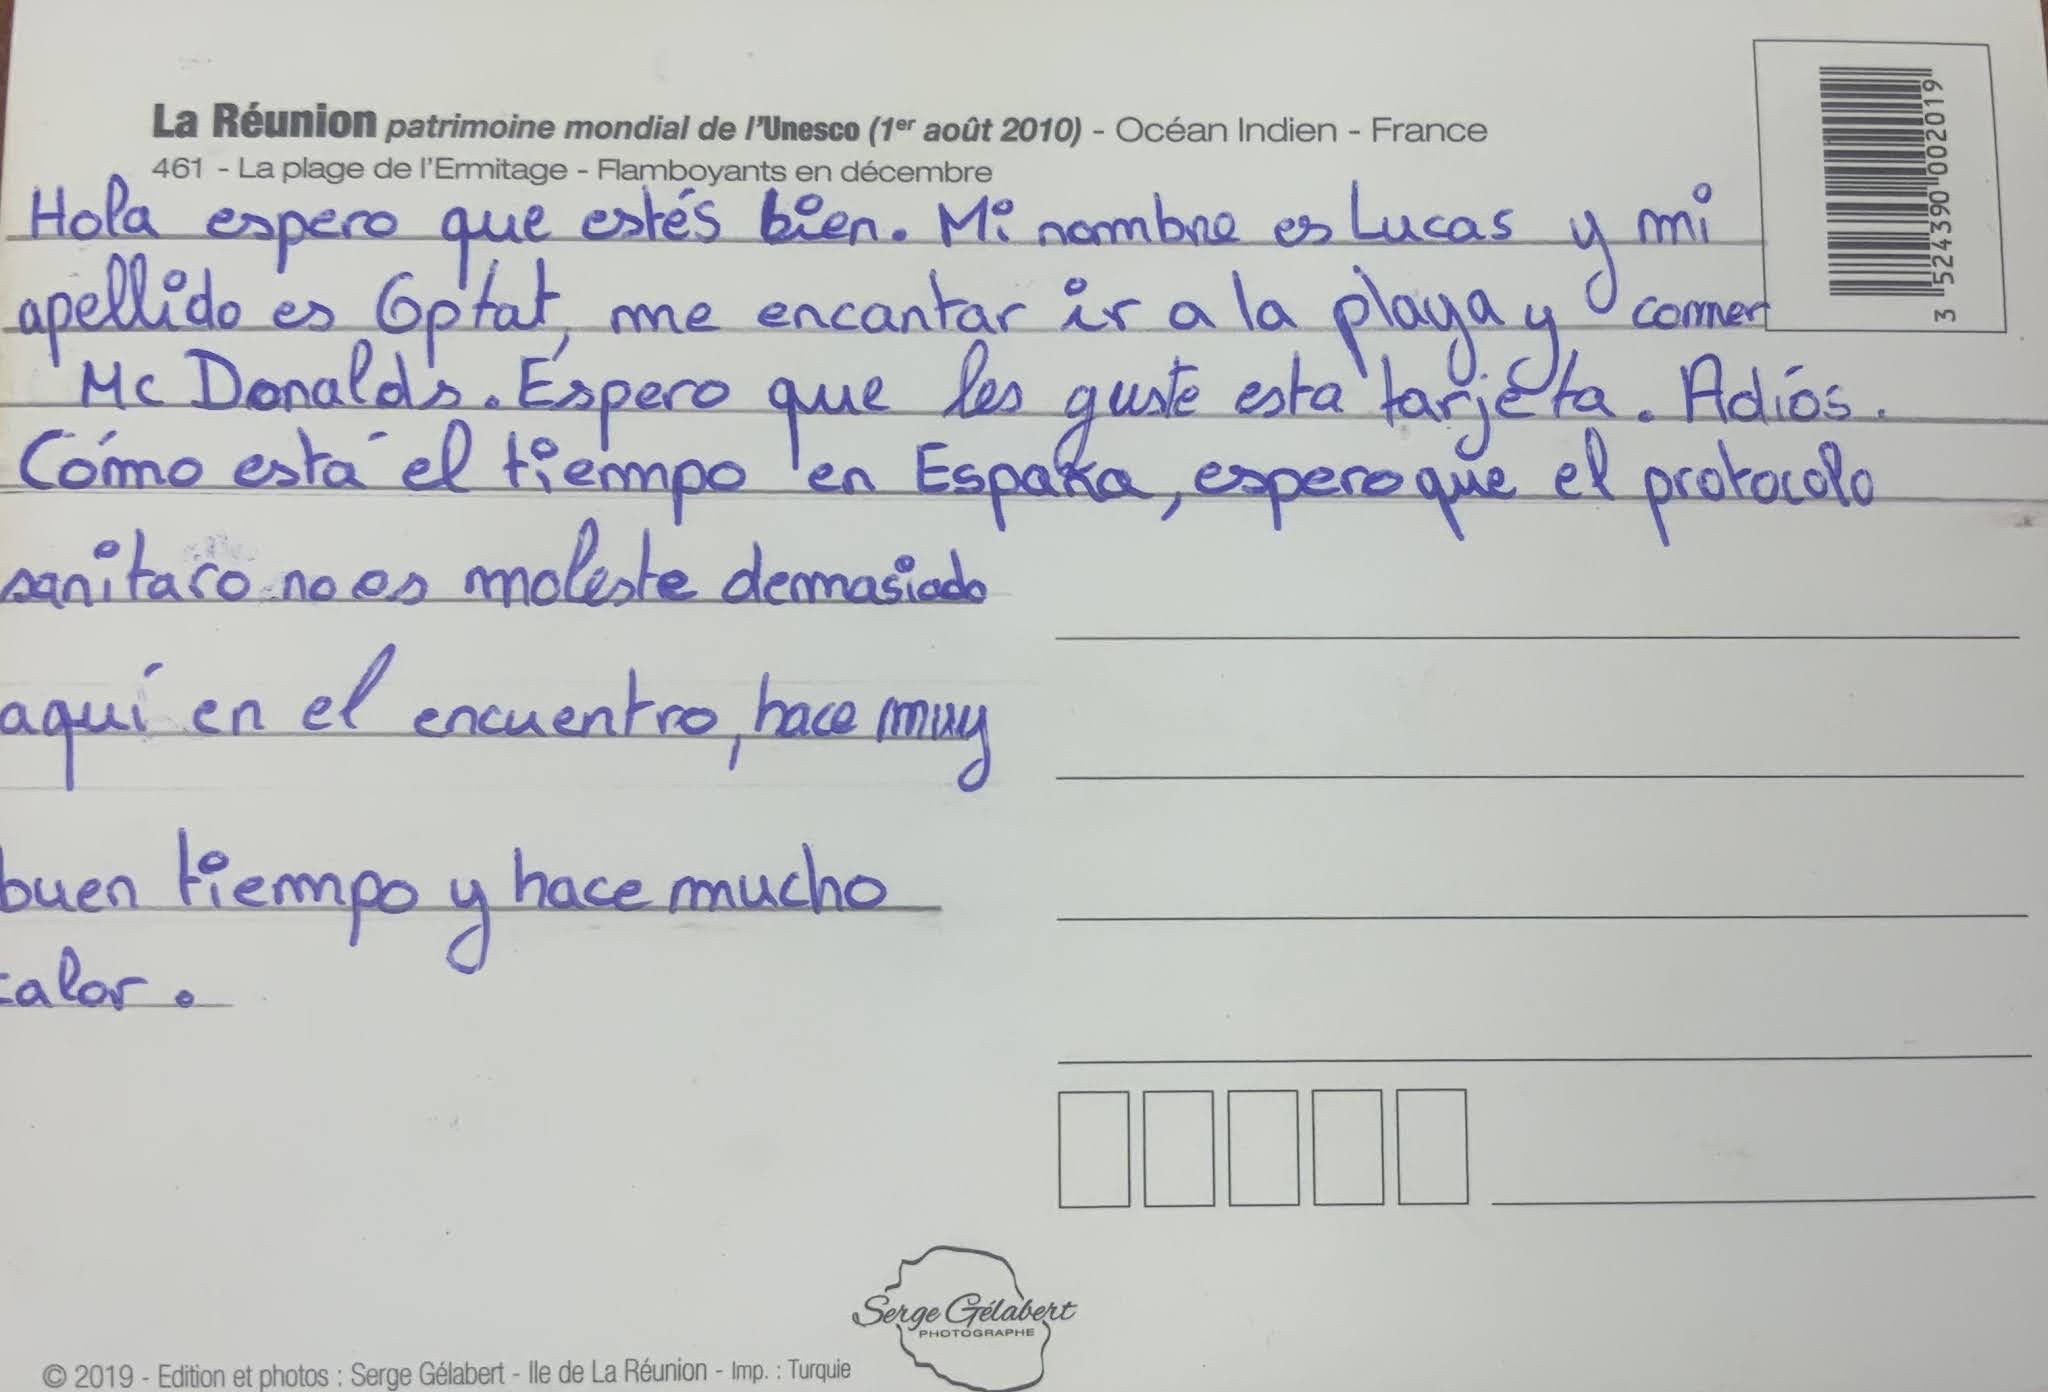 La Réunion patrimoine mondial de l'Unesco (1er août 2010) - Océan Indien - France
461 - La plage de l'Ermitage - Flamboyants en décembre
3 524390 002019
Hola espero que estés bien. Mi nombre es Lucas y mi
apellido es Optat, me encantar ir a la playa y comer
McDonald's. Espero que les guste esta tarjeta. Adiós.
Cómo está el tiempo en España, espero que el protocolo
sanitaro no es moleste demasiado
aquí en el encuentro, hace muy
buen tiempo y hace mucho
calor.
Serge Gélabert
PHOTOGRAPHE
© 2019 - Edition et photos : Serge Gélabert - Ile de La Réunion - Imp. : Turquie